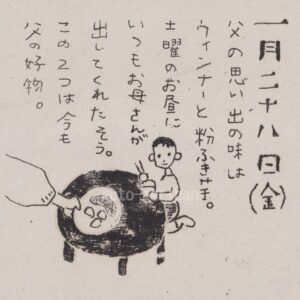 一月二十八日(金)
父の思い出の味は
ウィンナーと粉ふきサチ。
土曜のお昼に
いつもお母さんが
出してくれたそう。
この2つは今も
父の好物。